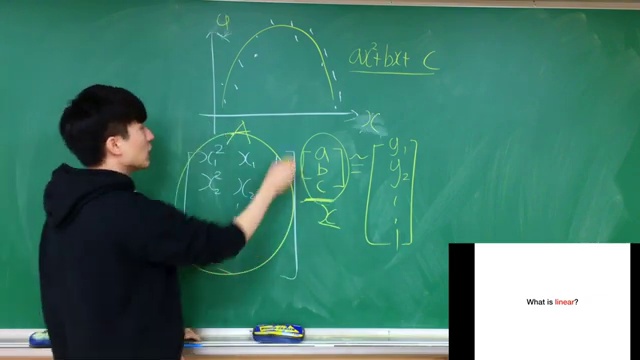 y
ax²+bx+ c
x
A
x₁² x₁
x₂² x₂
a
b
c
≈
y₁
y₂
x
What is linear?